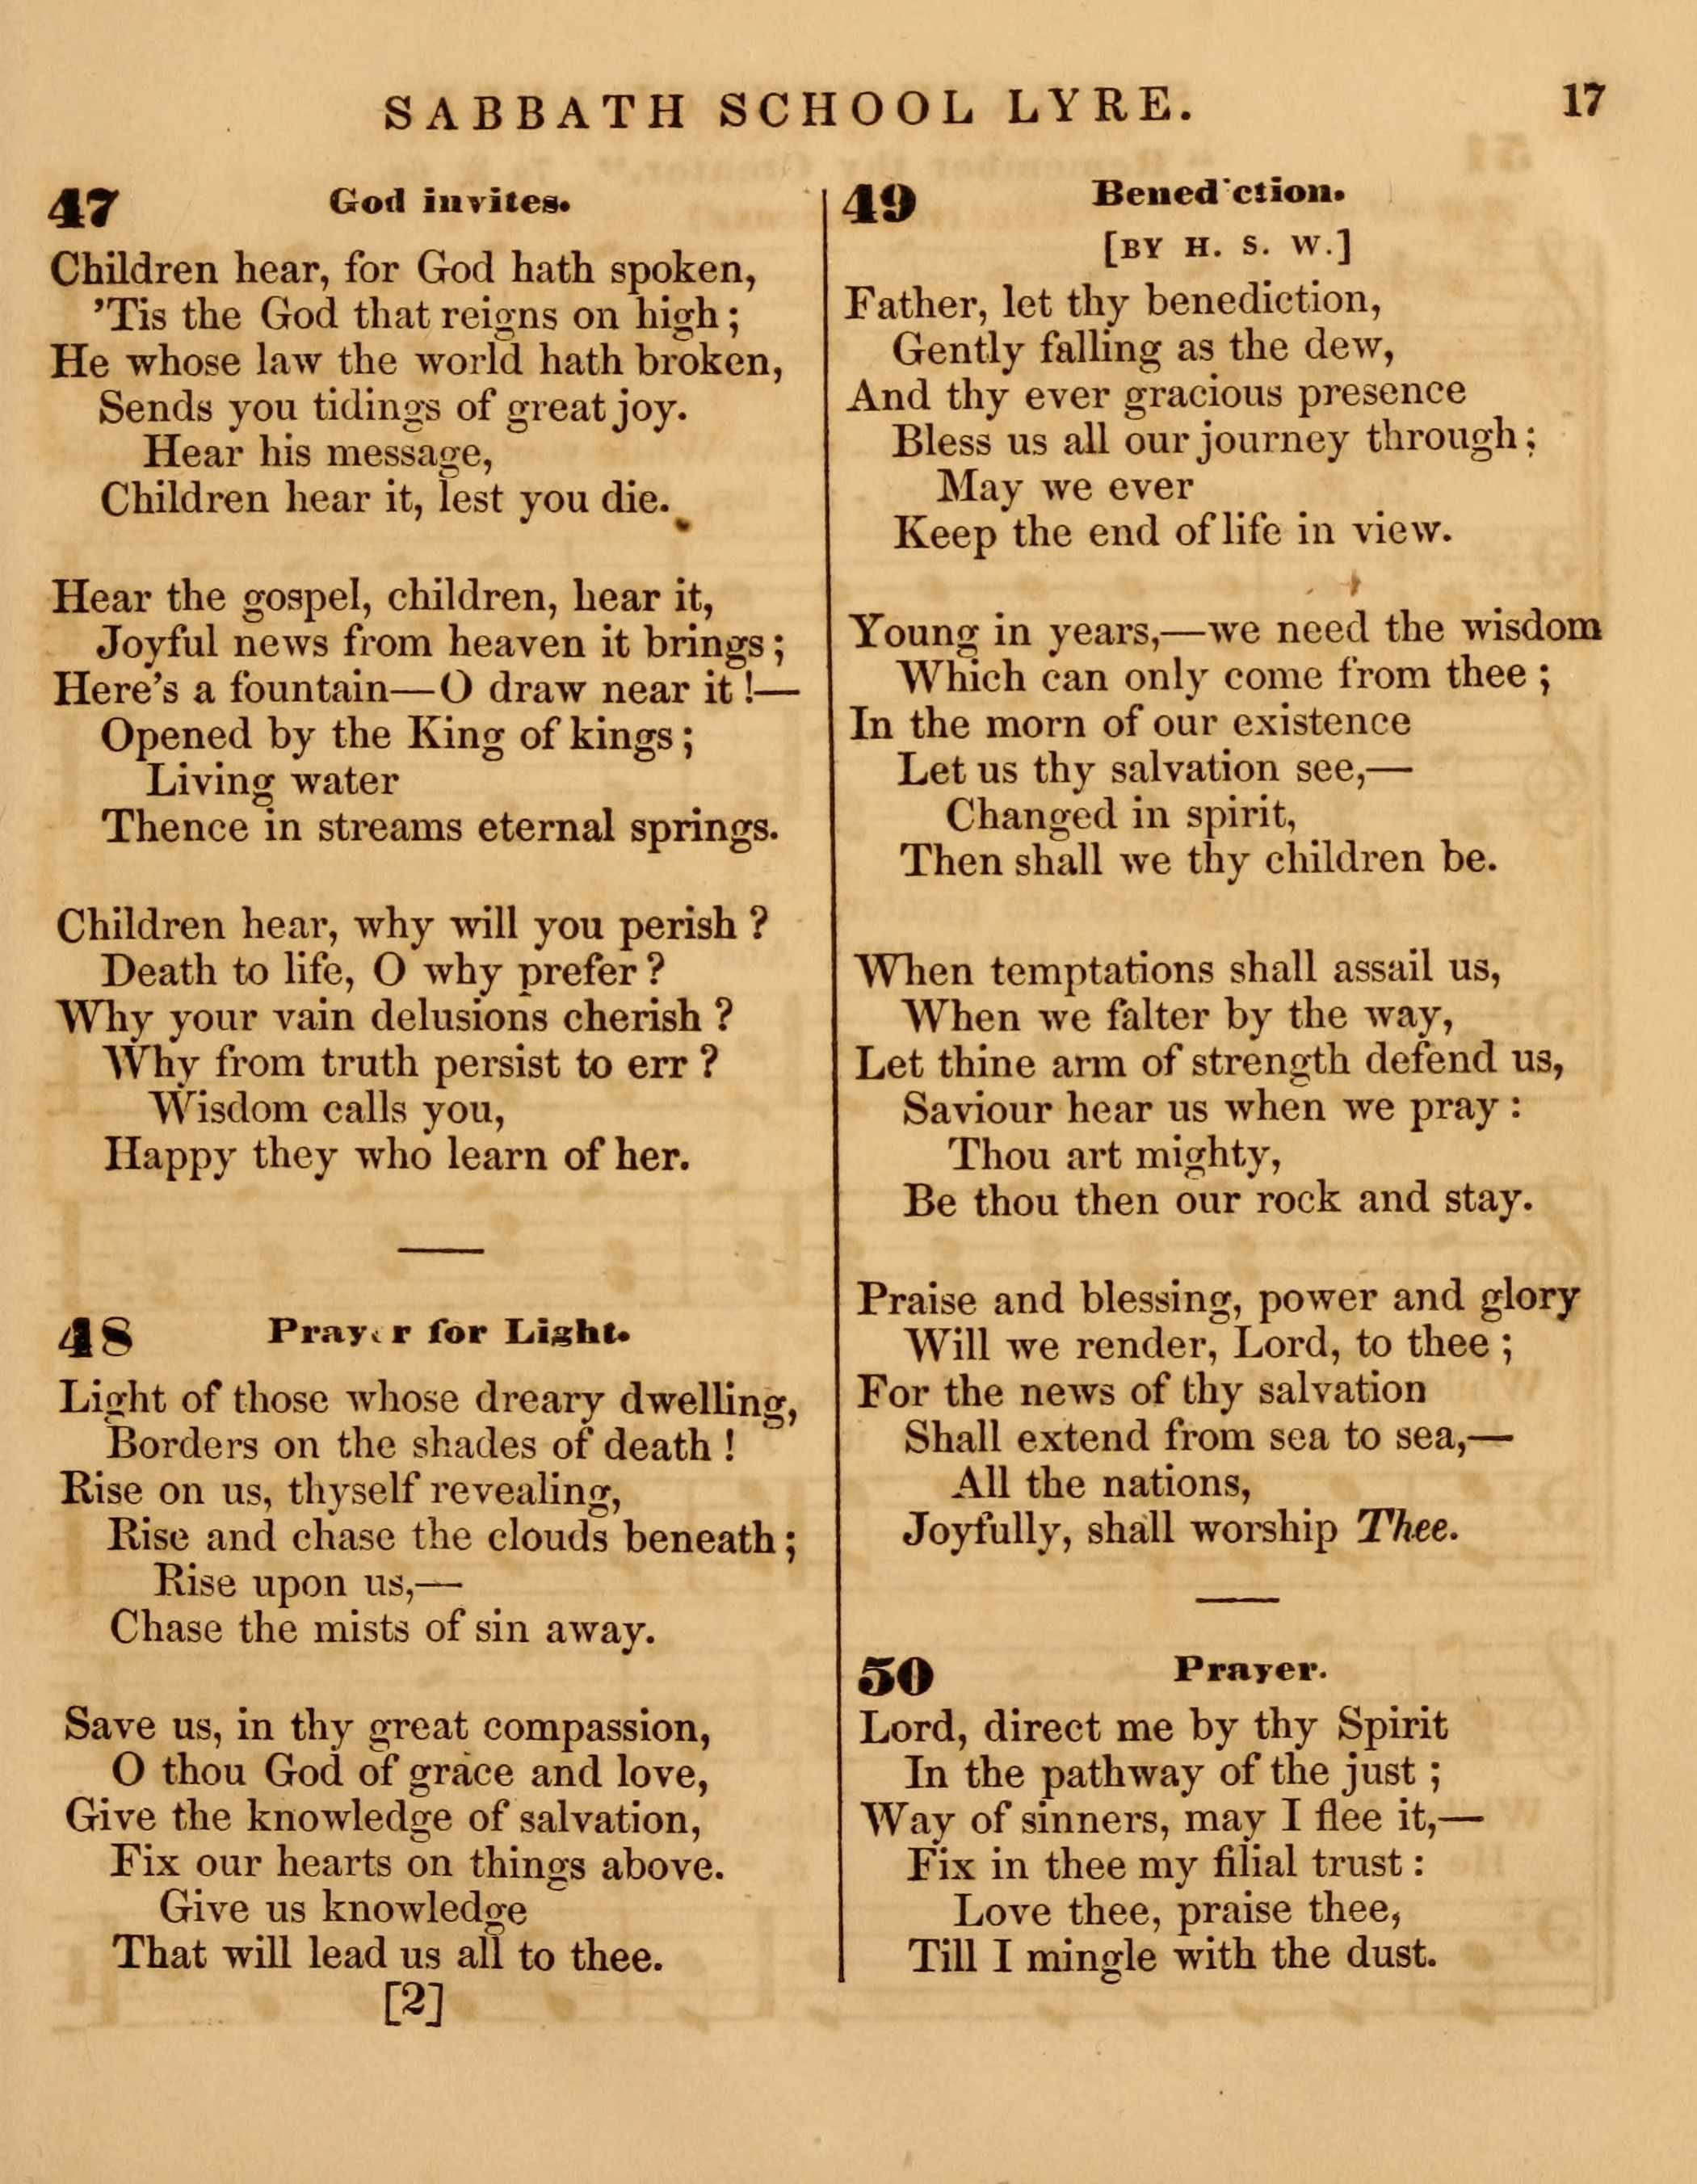 SABBATH SCHOOL LYRE. 17
47 God invites.
Children hear, for God hath spoken,
'Tis the God that reigns on high;
He whose law the world hath broken,
Sends you tidings of great joy.
Hear his message,
Children hear it, lest you die.
Hear the gospel, children, hear it,
Joyful news from heaven it brings;
Here's a fountain—O draw near it!—
Opened by the King of kings;
Living water
Thence in streams eternal springs.
Children hear, why will you perish?
Death to life, O why prefer?
Why your vain delusions cherish?
Why from truth persist to err?
Wisdom calls you,
Happy they who learn of her.
48 Prayer for Light.
Light of those whose dreary dwelling,
Borders on the shades of death!
Rise on us, thyself revealing,
Rise and chase the clouds beneath;
Rise upon us,—
Chase the mists of sin away.
Save us, in thy great compassion,
O thou God of grace and love,
Give the knowledge of salvation,
Fix our hearts on things above.
Give us knowledge
That will lead us all to thee.
[2]
49 Benediction.
[BY H. S. W.]
Father, let thy benediction,
Gently falling as the dew,
And thy ever gracious presence
Bless us all our journey through;
May we ever
Keep the end of life in view.
Young in years,—we need the wisdom
Which can only come from thee;
In the morn of our existence
Let us thy salvation see,—
Changed in spirit,
Then shall we thy children be.
When temptations shall assail us,
When we falter by the way,
Let thine arm of strength defend us,
Saviour hear us when we pray:
Thou art mighty,
Be thou then our rock and stay.
Praise and blessing, power and glory
Will we render, Lord, to thee;
For the news of thy salvation
Shall extend from sea to sea,—
All the nations,
Joyfully, shall worship Thee.
50 Prayer.
Lord, direct me by thy Spirit
In the pathway of the just;
Way of sinners, may I flee it,—
Fix in thee my filial trust:
Love thee, praise thee,
Till I mingle with the dust.